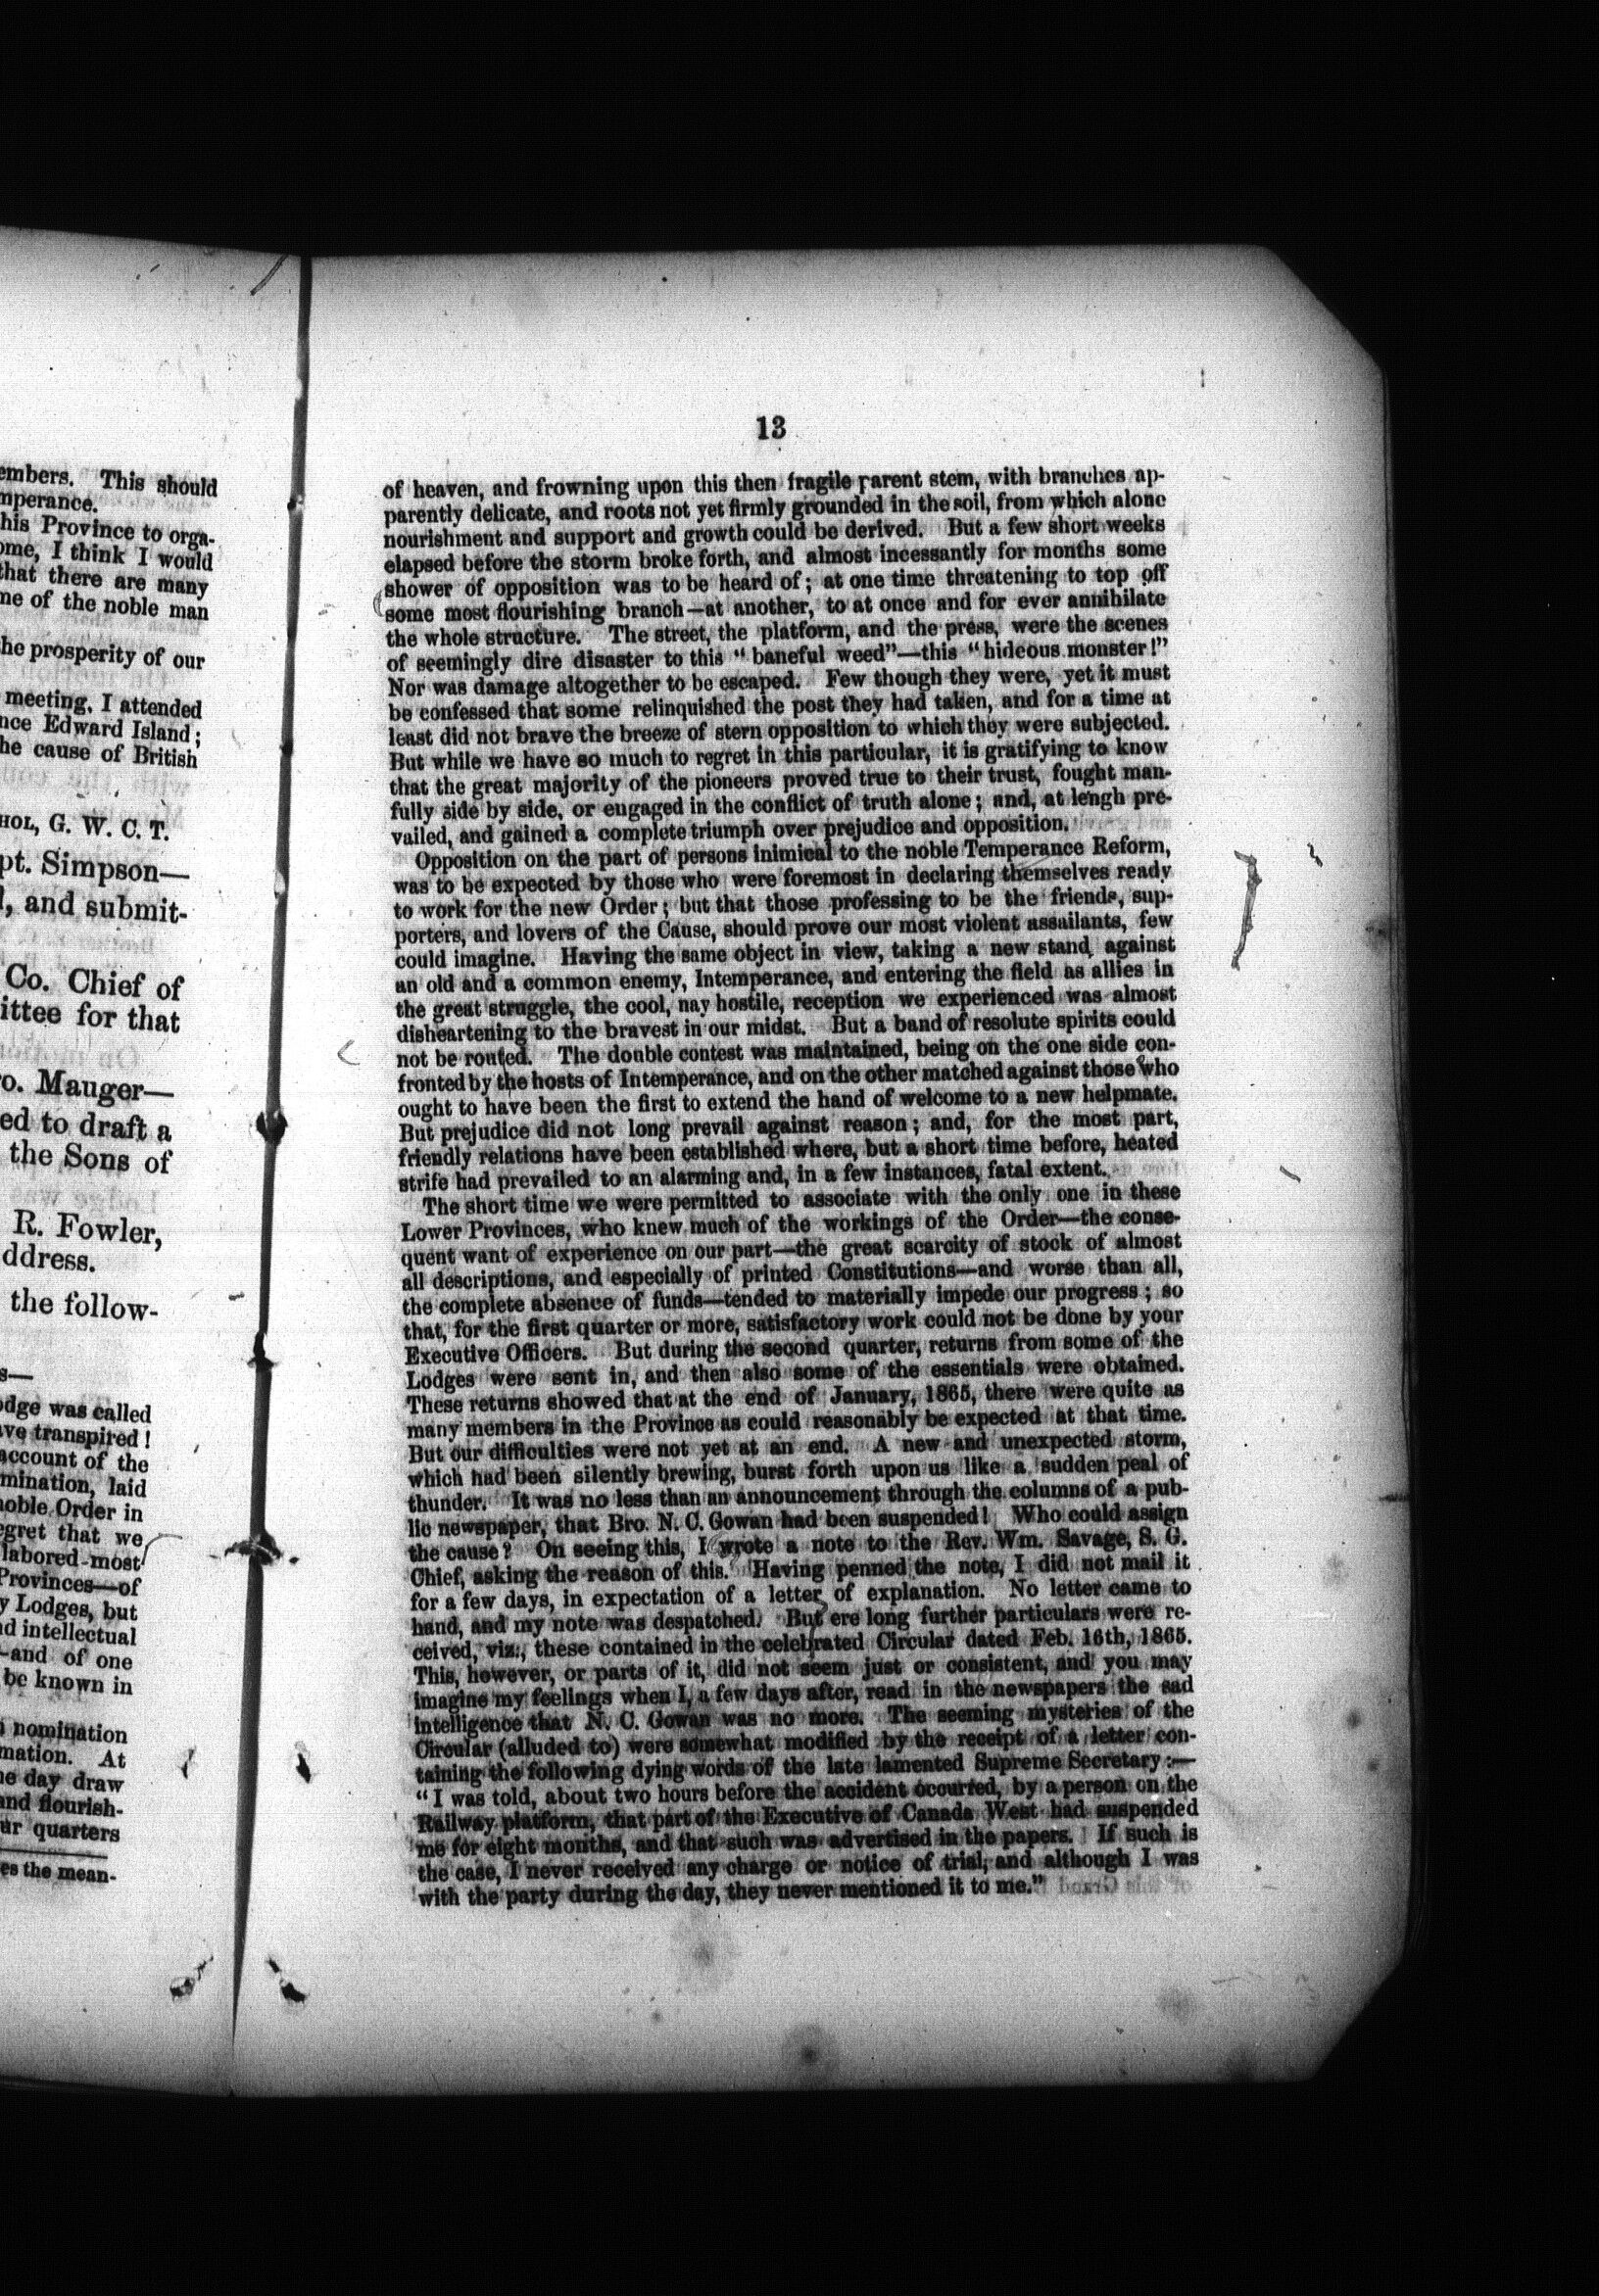 embers. This should
mperance.
his Province to orga-
ome, I think I would
that there are many
ne of the noble man
he prosperity of our
meeting, I attended
nce Edward Island;
he cause of British
HOL, G. W. C. T.
pt. Simpson—
l, and submit-
Co. Chief of
ittee for that
ro. Mauger—
ed to draft a
the Sons of
R. Fowler,
ddress.
the follow-
s—
odge was called
ave transpired!
account of the
mination, laid
noble Order in
egret that we
labored most
Provinces—of
y Lodges, but
nd intellectual
—and of one
be known in
nomination
mation. At
ne day draw
and flourish-
ur quarters
es the mean-
13
of heaven, and frowning upon this then fragile parent stem, with branches ap-
parently delicate, and roots not yet firmly grounded in the soil, from which alone
nourishment and support and growth could be derived. But a few short weeks
elapsed before the storm broke forth, and almost incessantly for months some
shower of opposition was to be heard of; at one time threatening to top off
some most flourishing branch—at another, to at once and for ever annihilate
the whole structure. The street, the platform, and the press, were the scenes
of seemingly dire disaster to this "baneful weed"—this "hideous monster!"
Nor was damage altogether to be escaped. Few though they were, yet it must
be confessed that some relinquished the post they had taken, and for a time at
least did not brave the breeze of stern opposition to which they were subjected.
But while we have so much to regret in this particular, it is gratifying to know
that the great majority of the pioneers proved true to their trust, fought man-
fully side by side, or engaged in the conflict of truth alone; and, at lengh pre-
vailed, and gained a complete triumph over prejudice and opposition.
Opposition on the part of persons inimical to the noble Temperance Reform,
was to be expected by those who were foremost in declaring themselves ready
to work for the new Order; but that those professing to be the friends, sup-
porters, and lovers of the Cause, should prove our most violent assailants, few
could imagine. Having the same object in view, taking a new stand against
an old and a common enemy, Intemperance, and entering the field as allies in
the great struggle, the cool, nay hostile, reception we experienced was almost
disheartening to the bravest in our midst. But a band of resolute spirits could
not be routed. The double contest was maintained, being on the one side con-
fronted by the hosts of Intemperance, and on the other matched against those who
ought to have been the first to extend the hand of welcome to a new helpmate.
But prejudice did not long prevail against reason; and, for the most part,
friendly relations have been established where, but a short time before, heated
strife had prevailed to an alarming and, in a few instances, fatal extent.
The short time we were permitted to associate with the only one in these
Lower Provinces, who knew much of the workings of the Order—the conse-
quent want of experience on our part—the great scarcity of stock of almost
all descriptions, and especially of printed Constitutions—and worse than all,
the complete absence of funds—tended to materially impede our progress; so
that, for the first quarter or more, satisfactory work could not be done by your
Executive Officers. But during the second quarter, returns from some of the
Lodges were sent in, and then also some of the essentials were obtained.
These returns showed that at the end of January, 1865, there were quite as
many members in the Province as could reasonably be expected at that time.
But our difficulties were not yet at an end. A new and unexpected storm,
which had been silently brewing, burst forth upon us like a sudden peal of
thunder. It was no less than an announcement through the columns of a pub-
lic newspaper, that Bro. N. C. Gowan had been suspended! Who could assign
the cause? On seeing this, I wrote a note to the Rev. Wm. Savage, S. G.
Chief, asking the reason of this. Having penned the note, I did not mail it
for a few days, in expectation of a letter of explanation. No letter came to
hand, and my note was despatched. But ere long further particulars were re-
ceived, viz., these contained in the celebrated Circular dated Feb. 16th, 1865.
This, however, or parts of it, did not seem just or consistent, and you may
imagine my feelings when I, a few days after, read in the newspapers the sad
intelligence that N. C. Gowan was no more. The seeming mysteries of the
Circular (alluded to) were somewhat modified by the receipt of a letter con-
taining the following dying words of the late lamented Supreme Secretary:—
"I was told, about two hours before the accident occurred, by a person on the
Railway platform, that part of the Executive of Canada West had suspended
me for eight months, and that such was advertised in the papers. If such is
the case, I never received any charge or notice of trial, and although I was
with the party during the day, they never mentioned it to me."